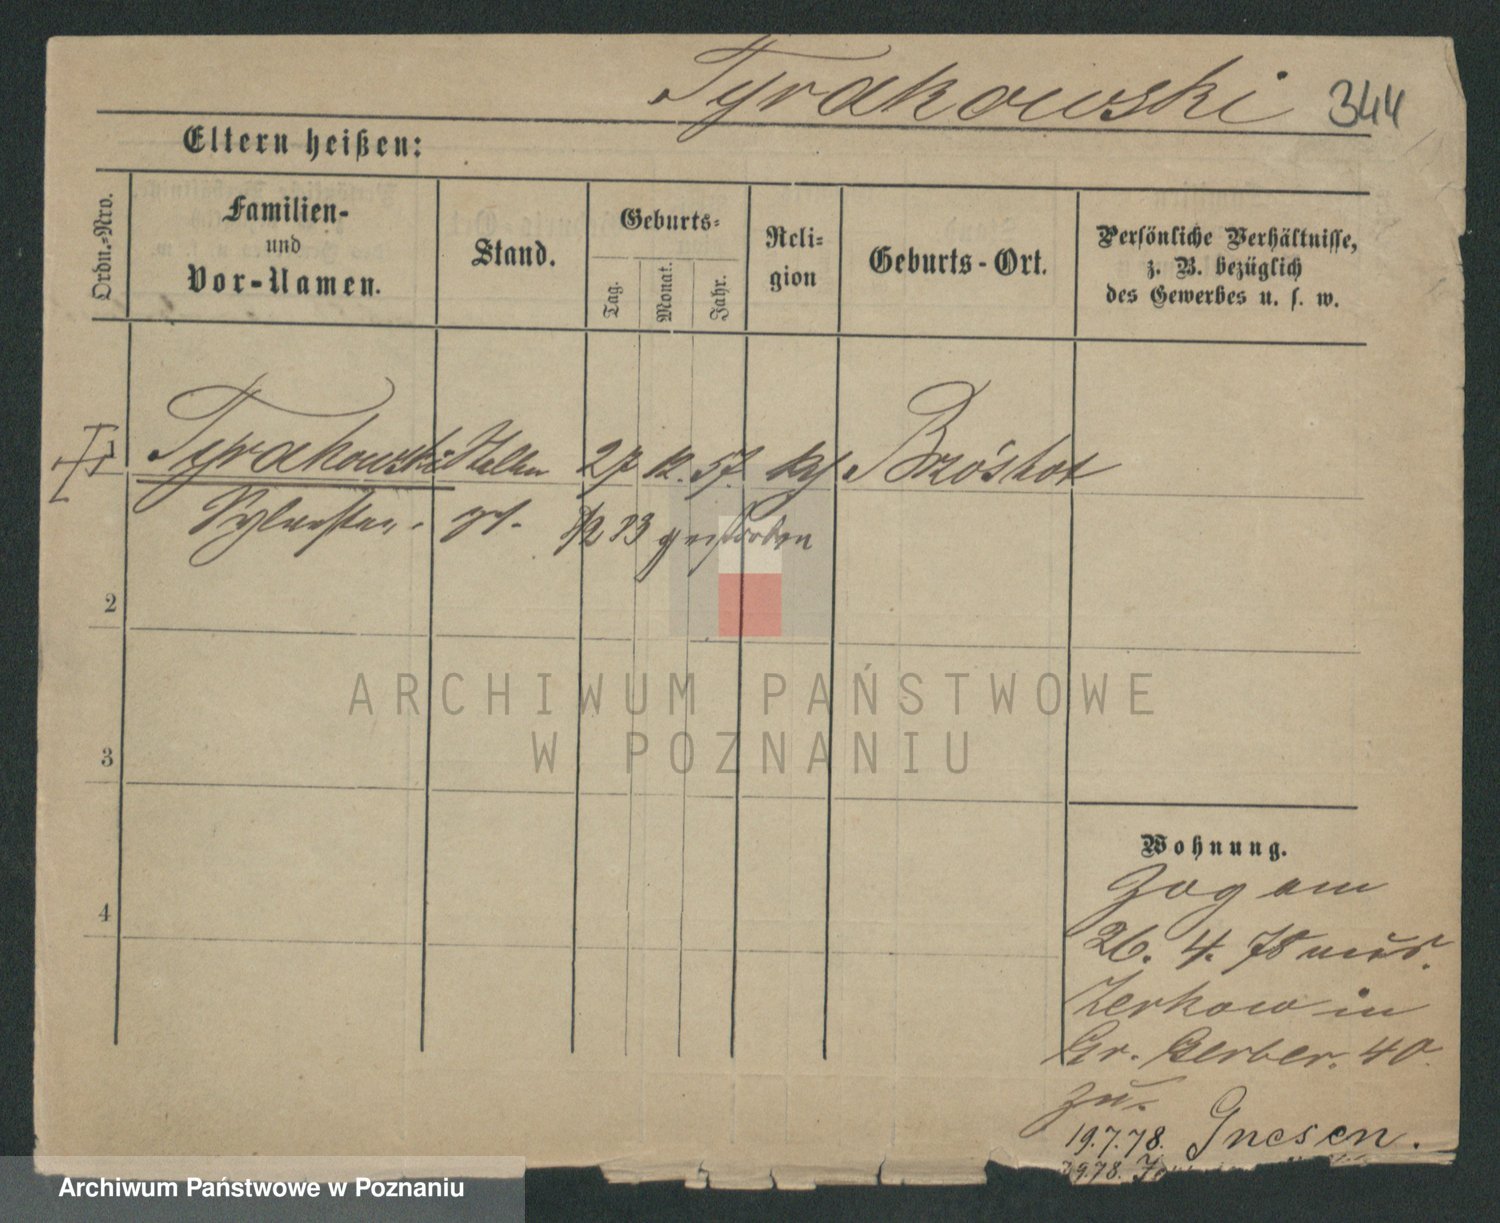 Tyrakowski 344
Eltern heißen:
Ordn.-Nro.
Familien-
und
Vor-Namen.
Stand.
Geburts-
Tag.
Monat.
Jahr.
Reli-
gion
Geburts-Ort.
Persönliche Verhältnisse,
z. B. bezüglich
des Gewerbes u. s. w.
1
Tyrakowski 27 12. 57. Brzóstot
Sylvester. 12 83 gestorben
2
3
4
ARCHIWUM PAŃSTWOWE
W POZNANIU
Wohnung.
Zog am
26. 4. 78 aus
Zerkow in
Gr. Gerber. 40.
zu.
19.7.78. Gnesen.
Archiwum Państwowe w Poznaniu